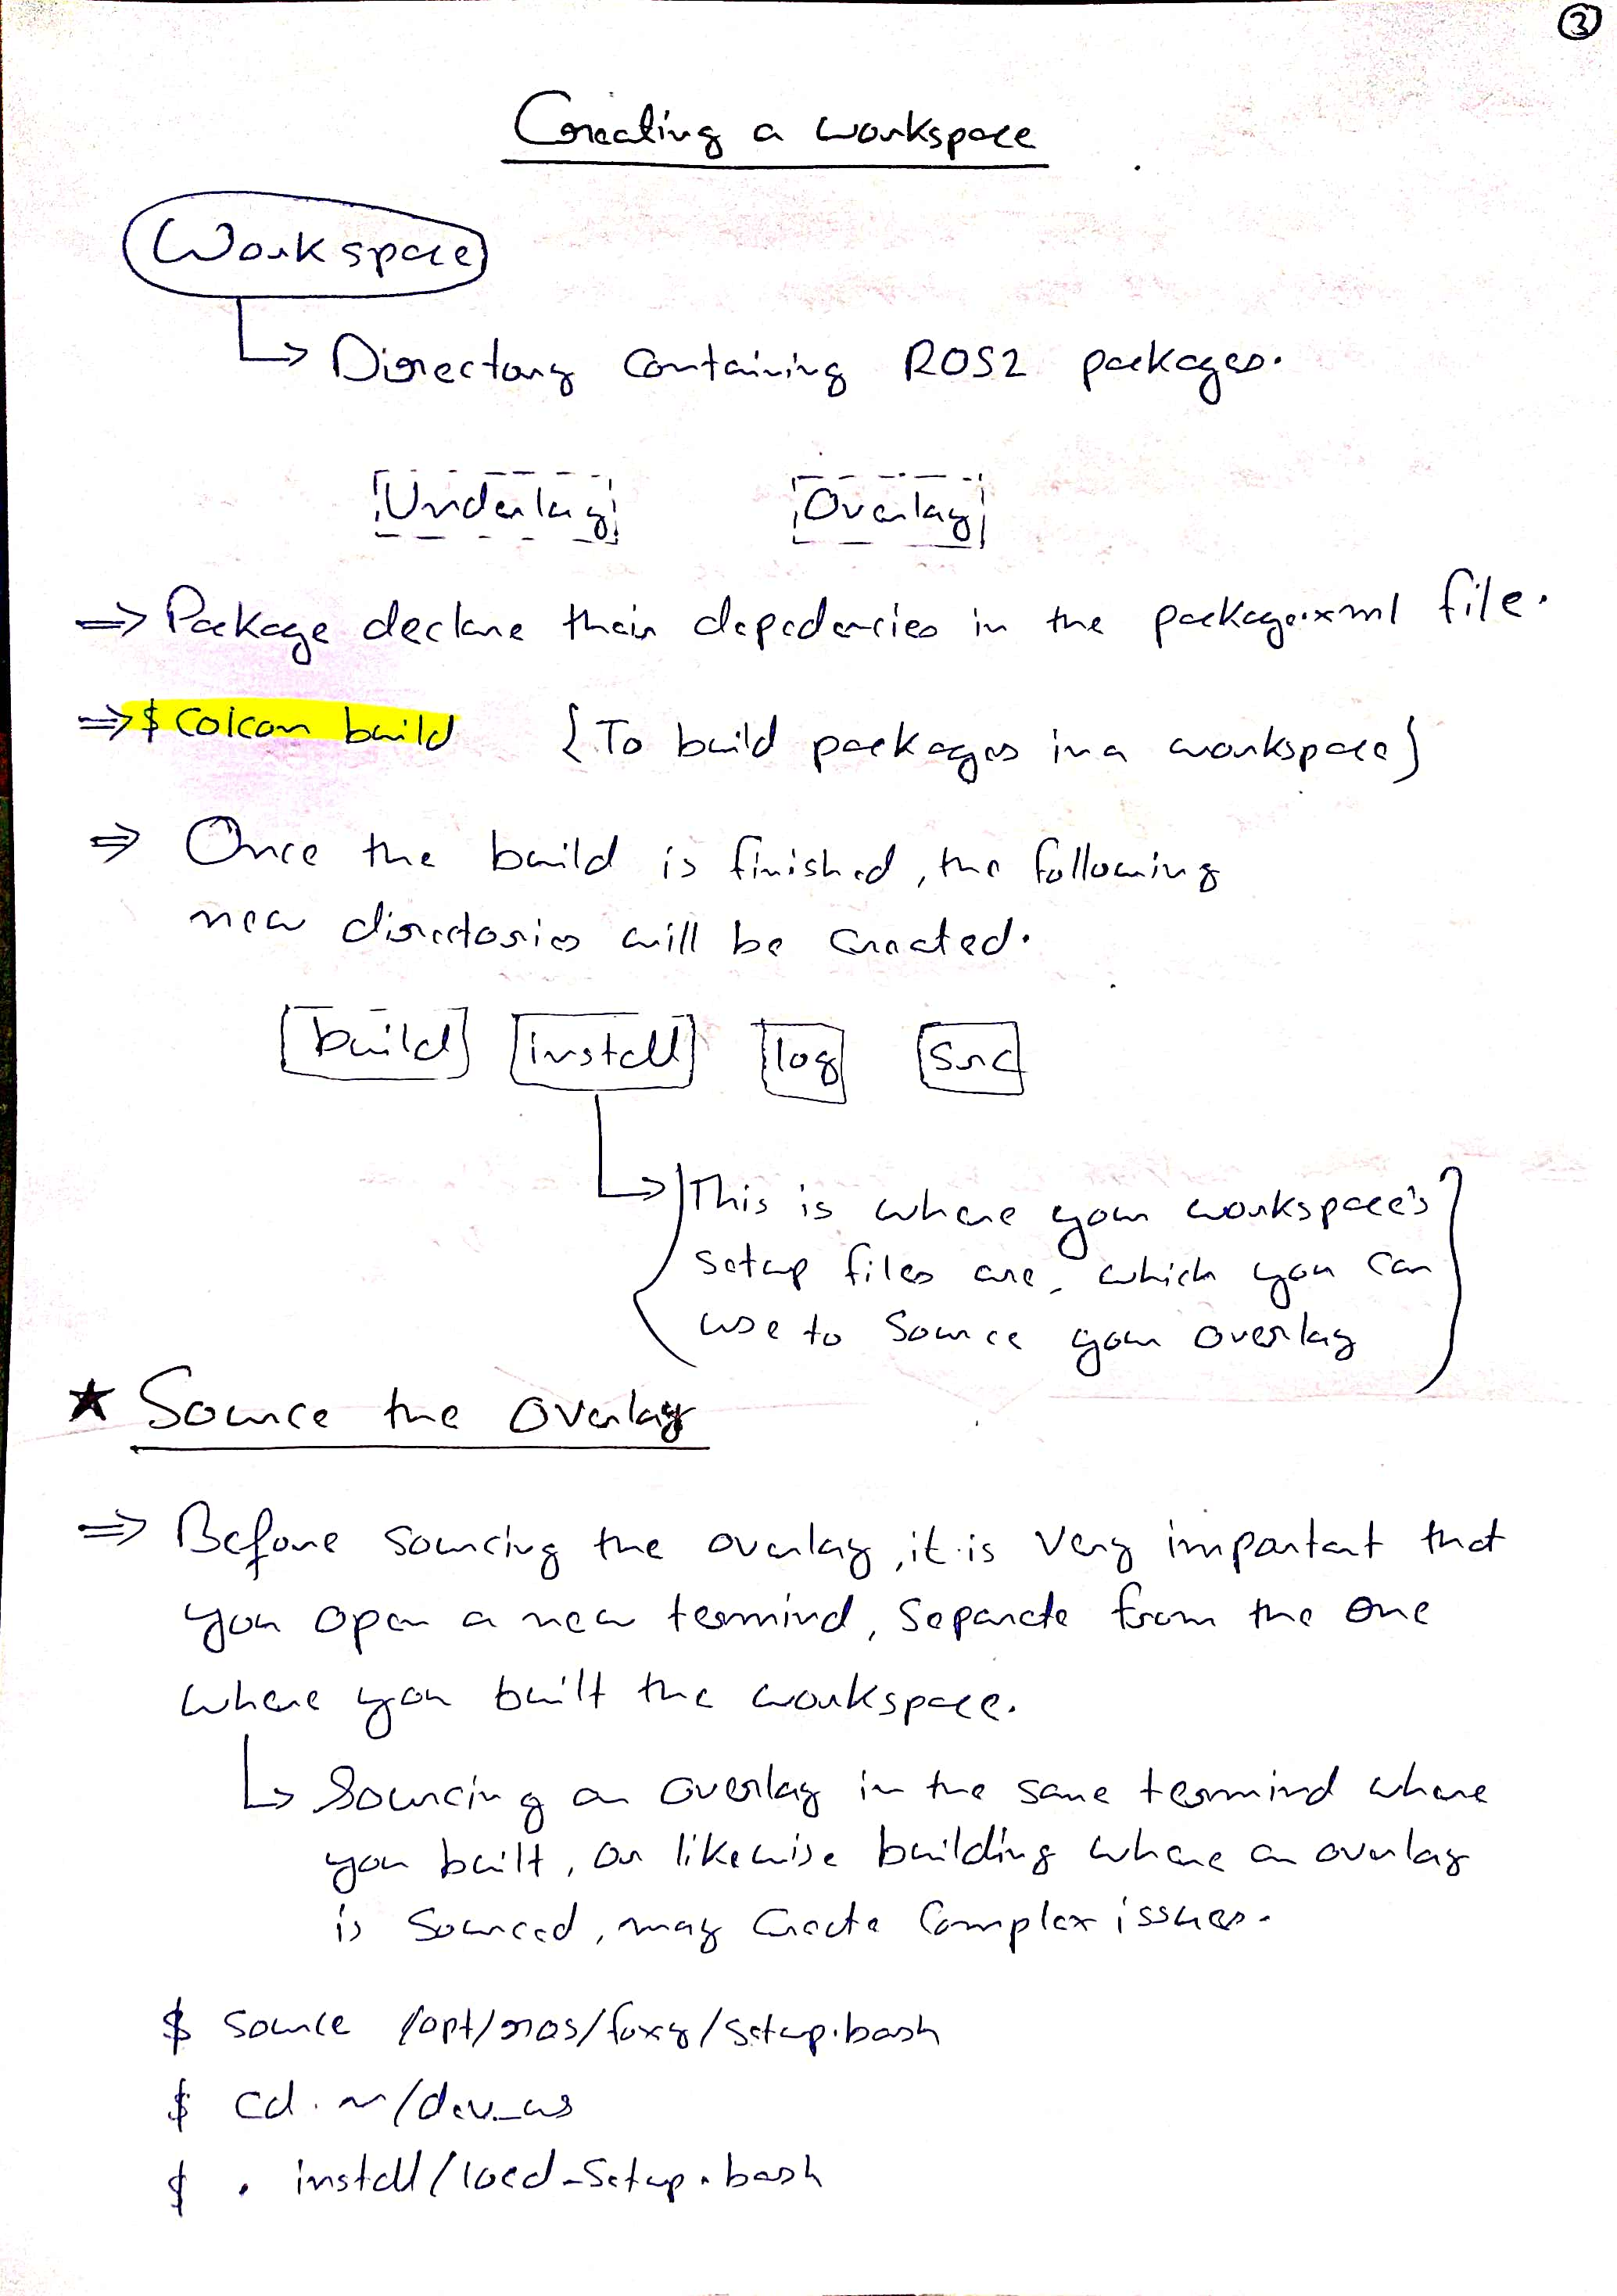 3
Creating a workspace
Workspace
Directory containing ROS2 packages.
Underlay Overlay
⇒ Package declare their depedencies in the package.xml file.
⇒ $ colcon build {To build packages in a workspace}
⇒ Once the build is finished, the following
new directories will be created.
build install log src
This is where your workspace's
setup files are, which you can
use to source your overlay
★ Source the overlay
⇒ Before sourcing the overlay, it is very important that
you open a new terminal, separate from the one
where you built the workspace.
↳ Sourcing an overlay in the same terminal where
you built, or likewise building where an overlay
is sourced, may create complex issues.
$ source /opt/ros/foxy/setup.bash
$ cd ~/dev_ws
$ . install/local_setup.bash